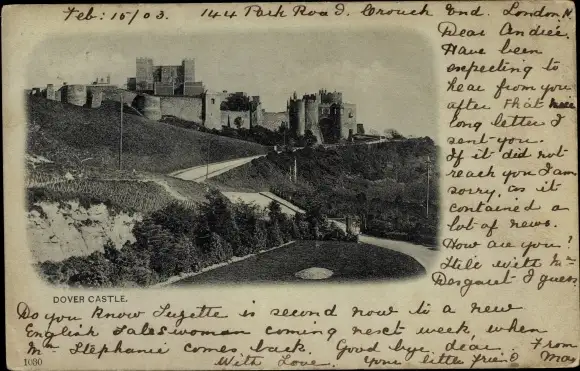 Feb: 15/03. 144 Park Road. Crouch End. London. N.
Dear Andrée.
Have been
expecting to
hear from you
after that nice
long letter I
sent you.
If it did not
reach you I am
sorry, as it
contained a
lot of news.
How are you?
Still with Mr
Desgaret I guess.
DOVER CASTLE.
Do you know Suzette is second now to a new
English saleswoman coming next week when
Mr Stephanie comes back. Good bye, dear. From
1030 With Love. Your little friend Mas